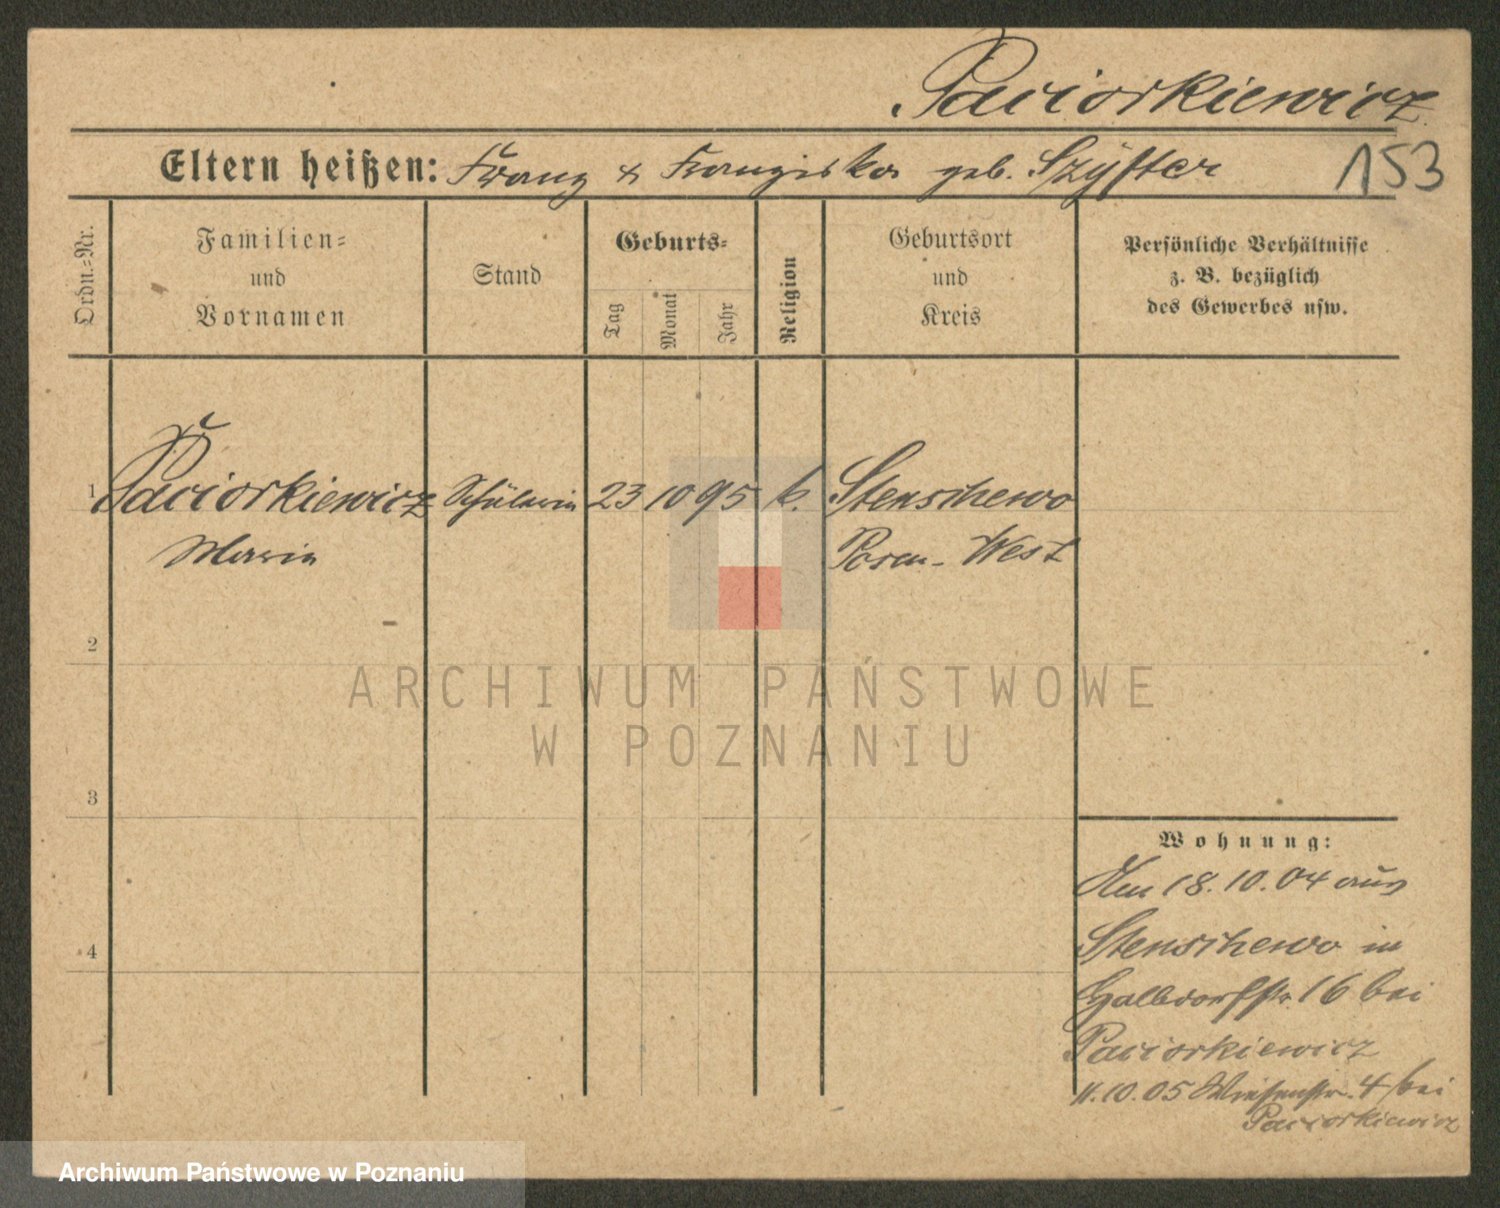 Paciorkiewicz
Eltern heißen: Franz & Franziska geb. Szyfter
153
Ordn.-Nr.
Familien-
und
Vornamen
Stand
Geburts-
Tag
Monat
Jahr
Religion
Geburtsort
und
Kreis
Persönliche Verhältnisse
z. B. bezüglich
des Gewerbes usw.
1 Paciorkiewicz Schülerin 23 10 95 k. Stenschewo
Maria Posen-West
2
ARCHIWUM PAŃSTWOWE
W POZNANIU
3
Wohnung:
Am 18.10.04 aus
Stenschewo in
4
Halbdorfstr. 16 bei
Paciorkiewicz
11.10.05 Wiesenstr. 4 bei
Paciorkiewicz
Archiwum Państwowe w Poznaniu